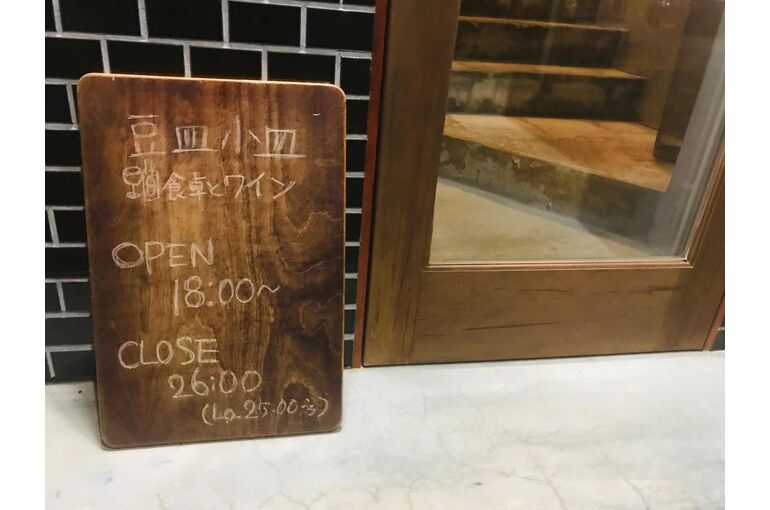 豆皿小皿
食卓とワイン
OPEN
18:00~
CLOSE
26:00
(Lo.25:00